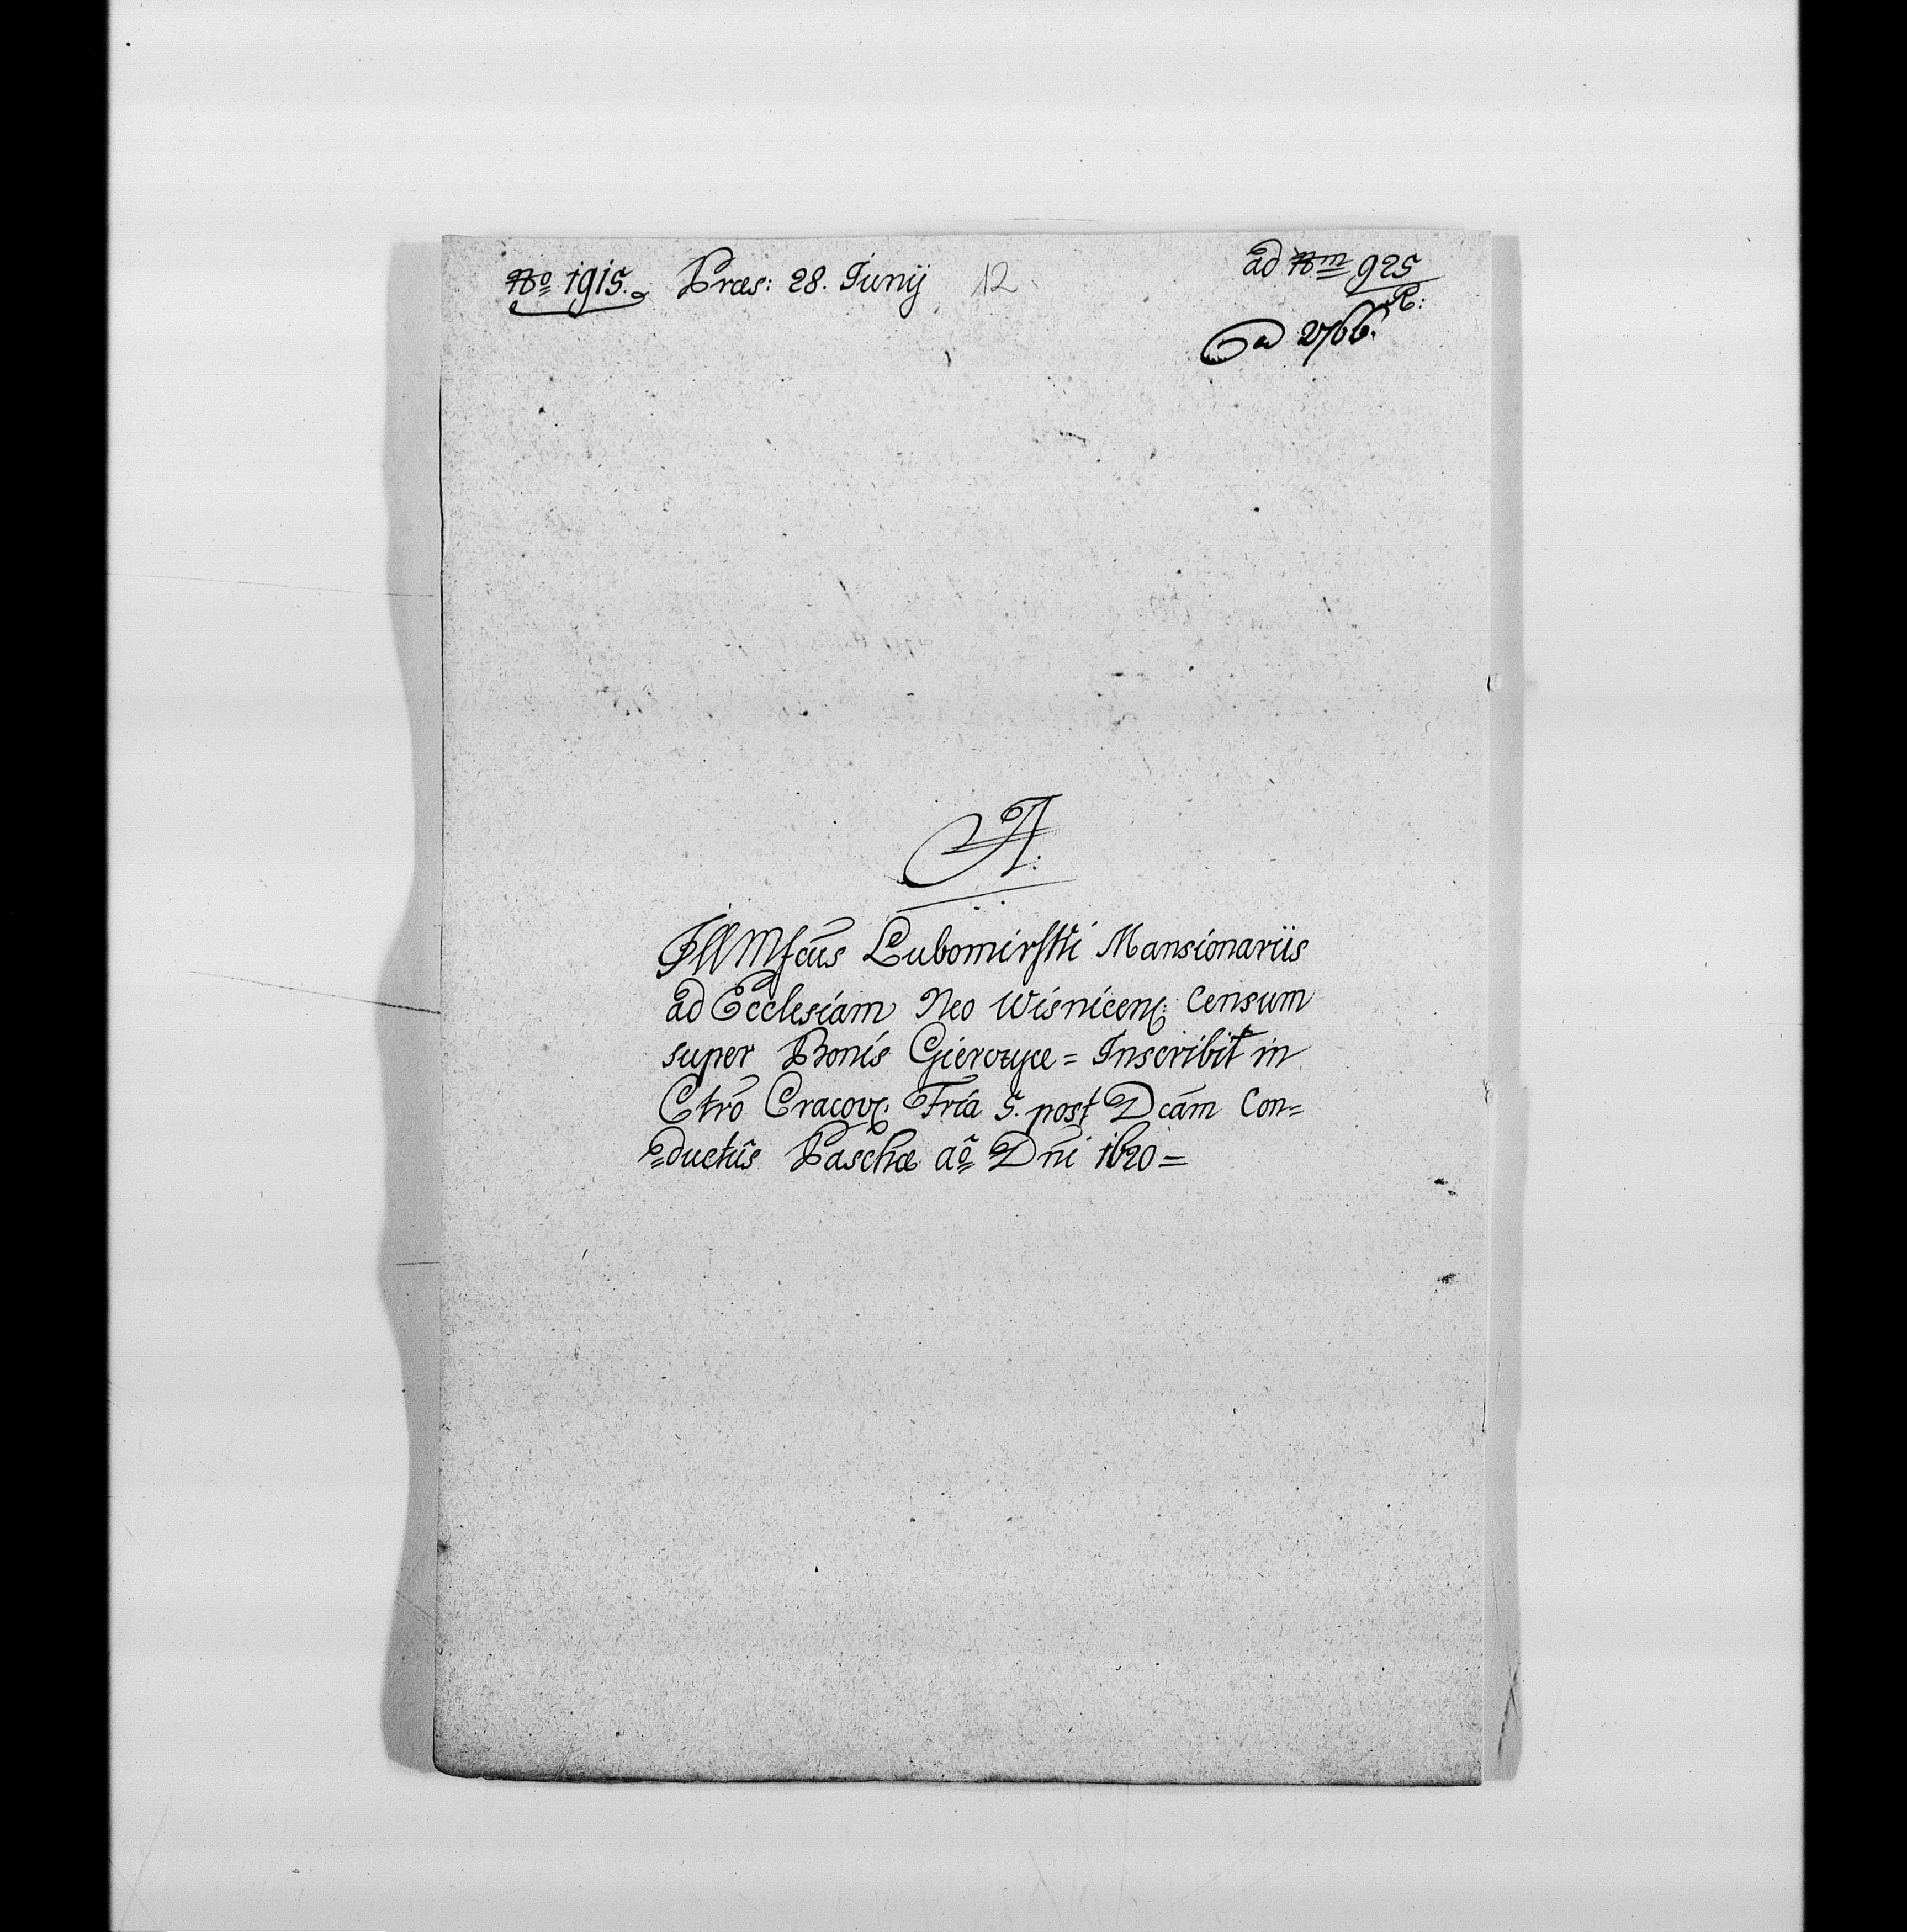 No 1915. Præs: 28. Junij 12
ad Nm 925
R:
ad 2766.
A.
Ill Mfcūs Lubomirski Mansionariis
ad Ecclesiam Neo Wisnicen: Censum
super Bonis Gierczyce = Inscribit in
Ctrō Cracov: Fria 5. post Dcām Con=
=ductūs Paschæ aō Dni 1620=